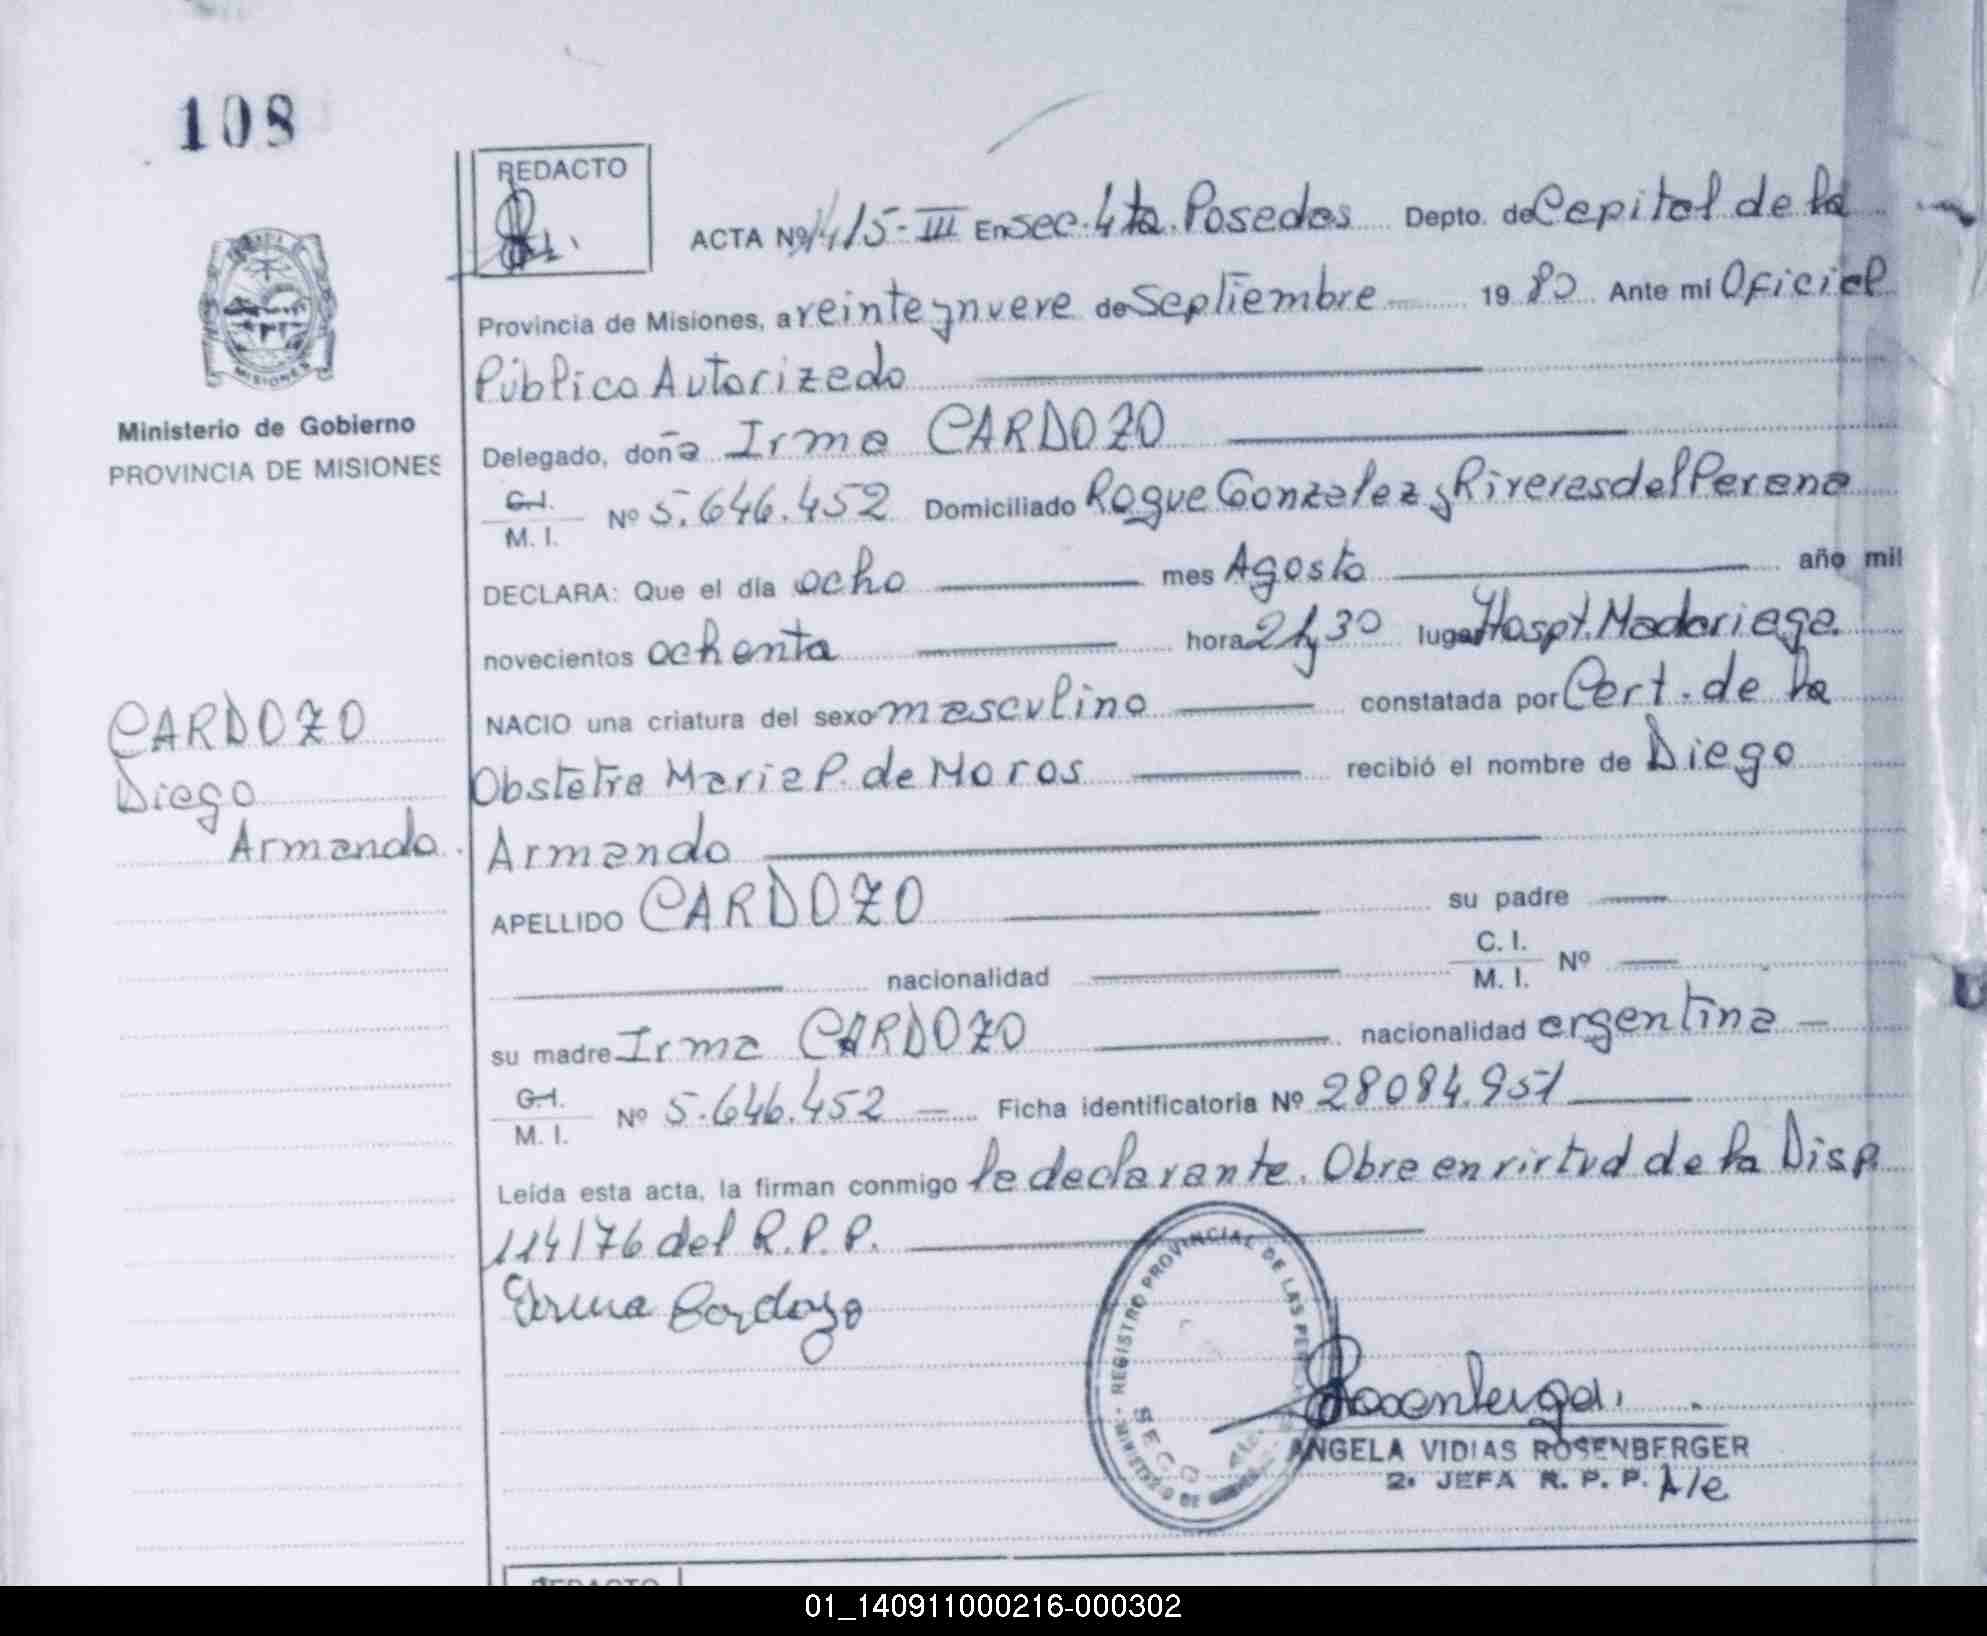 108
REDACTO
ACTA Nº 1415-III En Sec. 4ta. Posadas Depto. de Capital de la
Provincia de Misiones, a veinte y nueve de Septiembre 1980 Ante mi Oficial
Público Autorizado
Delegado, doña Irma CARDOZO
Ministerio de Gobierno
PROVINCIA DE MISIONES
MISIONES
C.I.
M. I. Nº 5.646.452 Domiciliado Roque Gonzalez y Riveras del Parana
DECLARA: Que el día ocho mes Agosto año mil
novecientos ochenta hora 21y30 lugar Hospt. Madariaga.
NACIO una criatura del sexo masculino constatada por Cert. de la
CARDOZO
Diego
Armando.
Obstetra Maria P. de Moros recibió el nombre de Diego
Armando
APELLIDO CARDOZO su padre
nacionalidad C. I.
M. I. Nº
su madre Irma CARDOZO nacionalidad argentina
C.I.
M. I. Nº 5.646.452 Ficha identificatoria Nº 28084.951
Leída esta acta, la firman conmigo la declarante. Obre en virtud de la Disp
114/76 del R.P.P.
Irma Cardozo
REGISTRO PROVINCIAL DE LAS PER
MINISTERIO DE
SECC. 4ta.
Rosenberger
ANGELA VIDIAS ROSENBERGER
2º JEFA R. P. P. A/c
REDACTO
01_140911000216-000302